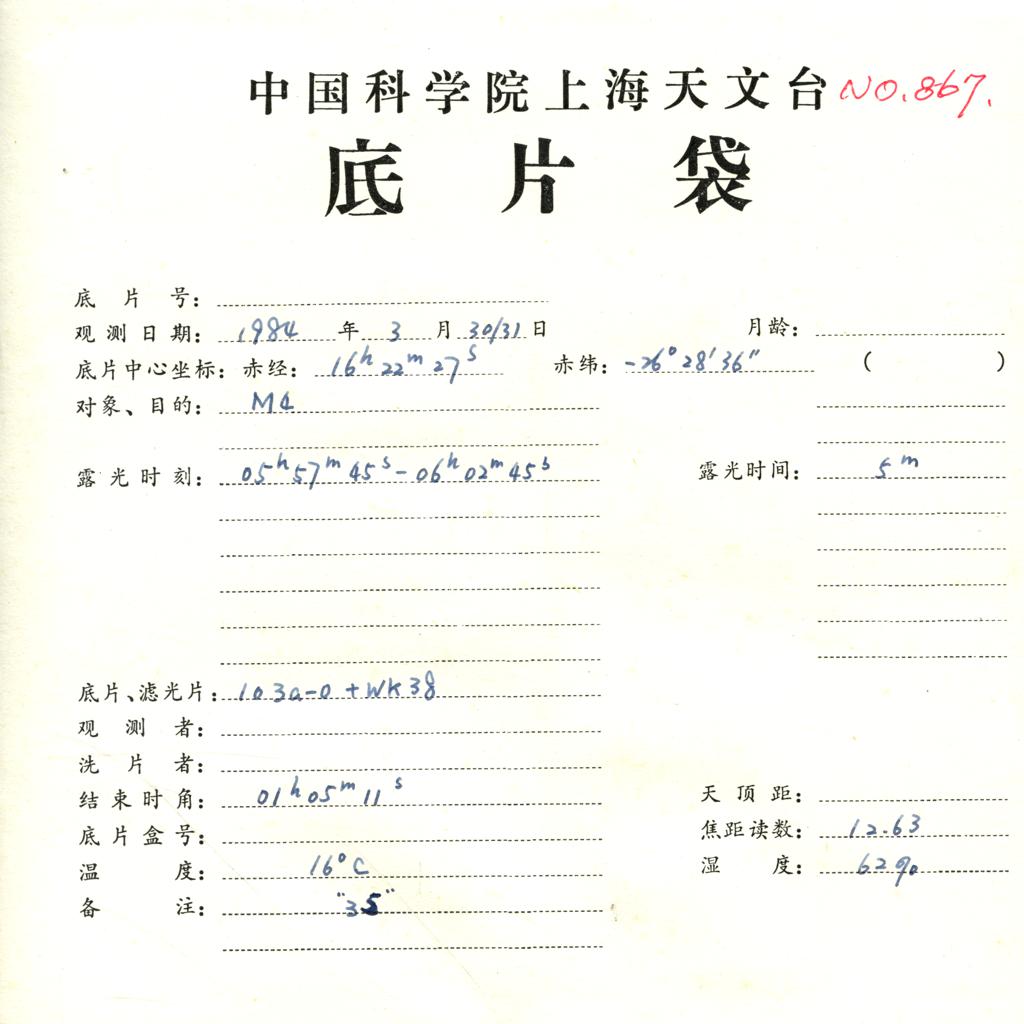 中国科学院上海天文台 NO.867.
底片袋
底片号：
观测日期： 1984 年 3 月 30/31 日 月龄：
底片中心坐标：赤经： 16h 22m 27s 赤纬： -26° 28′ 36″ ( )
对象、目的： M4
露光时刻： 05h 57m 45s - 06h 02m 45s 露光时间： 5m
底片、滤光片： 103a-O + WK38
观测者：
洗片者：
结束时角： 01h 05m 11s 天顶距：
底片盒号： 焦距读数： 12.63
温度： 16°C 湿度： 62%
备注： "35"